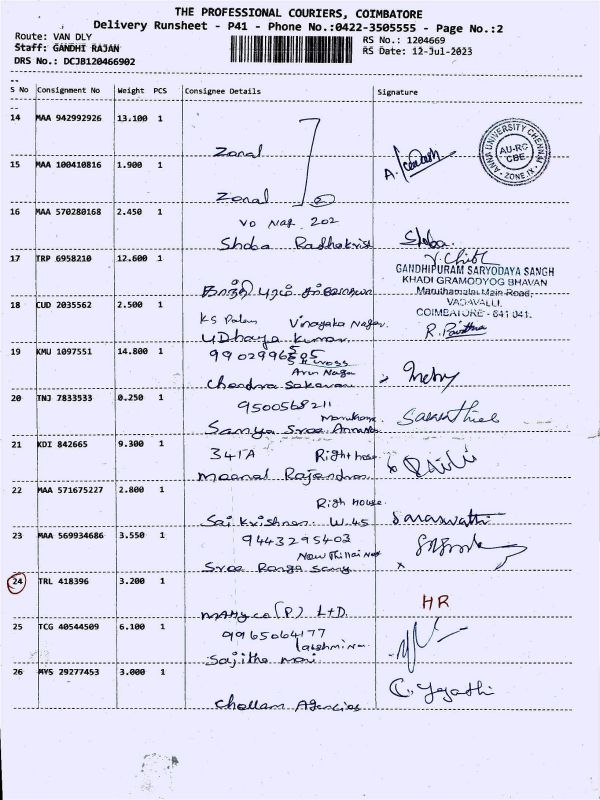 THE PROFESSIONAL COURIERS, COIMBATORE
Delivery Runsheet - P41 - Phone No.:0422-3505555 - Page No.:2
Route: VAN DLY
RS No.: 1204669
Staff: GANDHI RAJAN
RS Date: 12-Jul-2023
DRS No.: DCJB120466902
S No Consignment No Weight PCS Consignee Details Signature
14 MAA 942992926 13.100 1
Zonal
ANNA UNIVERSITY CHENNAI
AU-RC
CBE
ZONE.IX
15 MAA 100410816 1.900 1
Zonal
16 MAA 570280168 2.450 1
vo Nag. 202
Shoba Radhakrish
Shoba.
17 TRP 6958210 12.600 1
GANDHIPURAM SARYODAYA SANGH
KHADI GRAMODYOG BHAVAN
Maruthamalai Main Road,
VADAVALLI,
COIMBATORE - 641 041.
18 CUD 2035562 2.500 1
KS Palam Vinayaka Nagar
Udhaya Kumar
19 KMU 1097551 14.800 1
Arun Nagar
20 TNJ 7833533 0.250 1
9500568211
21 KDI 842665 9.300 1
341A Right hose
Rajendran
22 MAA 571675227 2.800 1
Righ House
Sai Krishnan W.45
Saraswathi
23 MAA 569934686 3.550 1
9443295403
Sree Ranga Samy
24 TRL 418396 3.200 1
HR
MAHYCO (P) LTD.
25 TCG 40544509 6.100 1
9965064177
26 MYS 29277453 3.000 1
Chellam Agencies